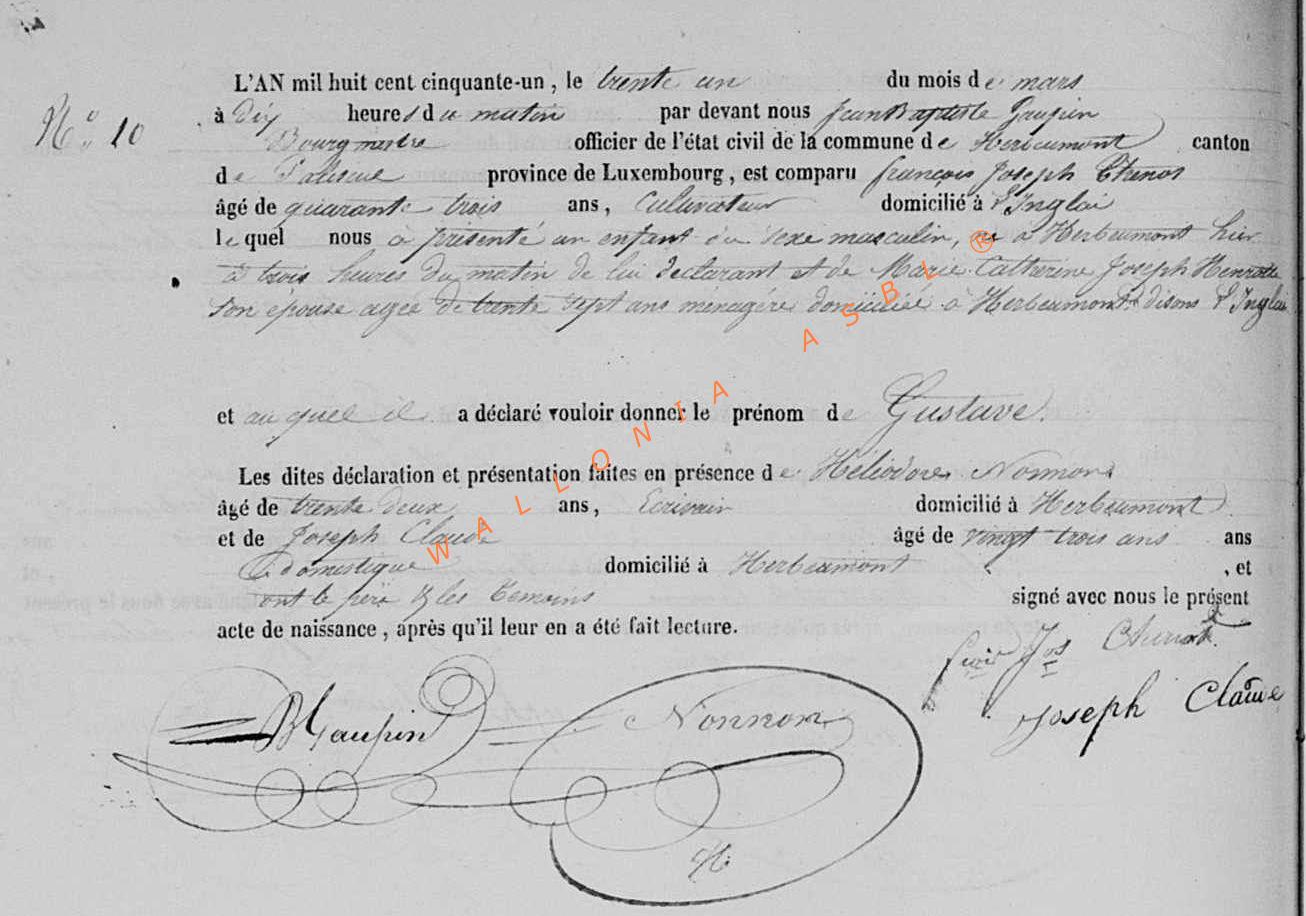 L'AN mil huit cent cinquante-un, le trente un du mois de mars
N° 10
à dix heures du matin par devant nous Jean Baptiste Gaupin
Bourgmestre officier de l'état civil de la commune de Herbeumont canton
de Paliseul province de Luxembourg, est comparu françois Joseph
âgé de quarante trois ans, Cultivateur domicilié à l'Inglai
lequel nous à présenté un enfant du sexe masculin, né à Herbeumont hier
à trois heures du matin de lui déclarant et de Marie Catherine Joseph
son epouse agée de trente sept ans ménagère domiciliée à Herbeumont disons l'Inglai
et au quel il a déclaré vouloir donner le prénom de Gustave.
Les dites déclaration et présentation faites en présence de Héliodore Nonnon
âgé de trente deux ans, Ecrivain domicilié à Herbeumont
et de Joseph Claude âgé de vingt trois ans ans
domestique domicilié à Herbeumont , et
ont le père & les temoins signé avec nous le présent
acte de naissance, après qu'il leur en a été fait lecture.
Jos
Joseph Claude
BGaupin Nonnon
H.
WALLONIA ASBL ®